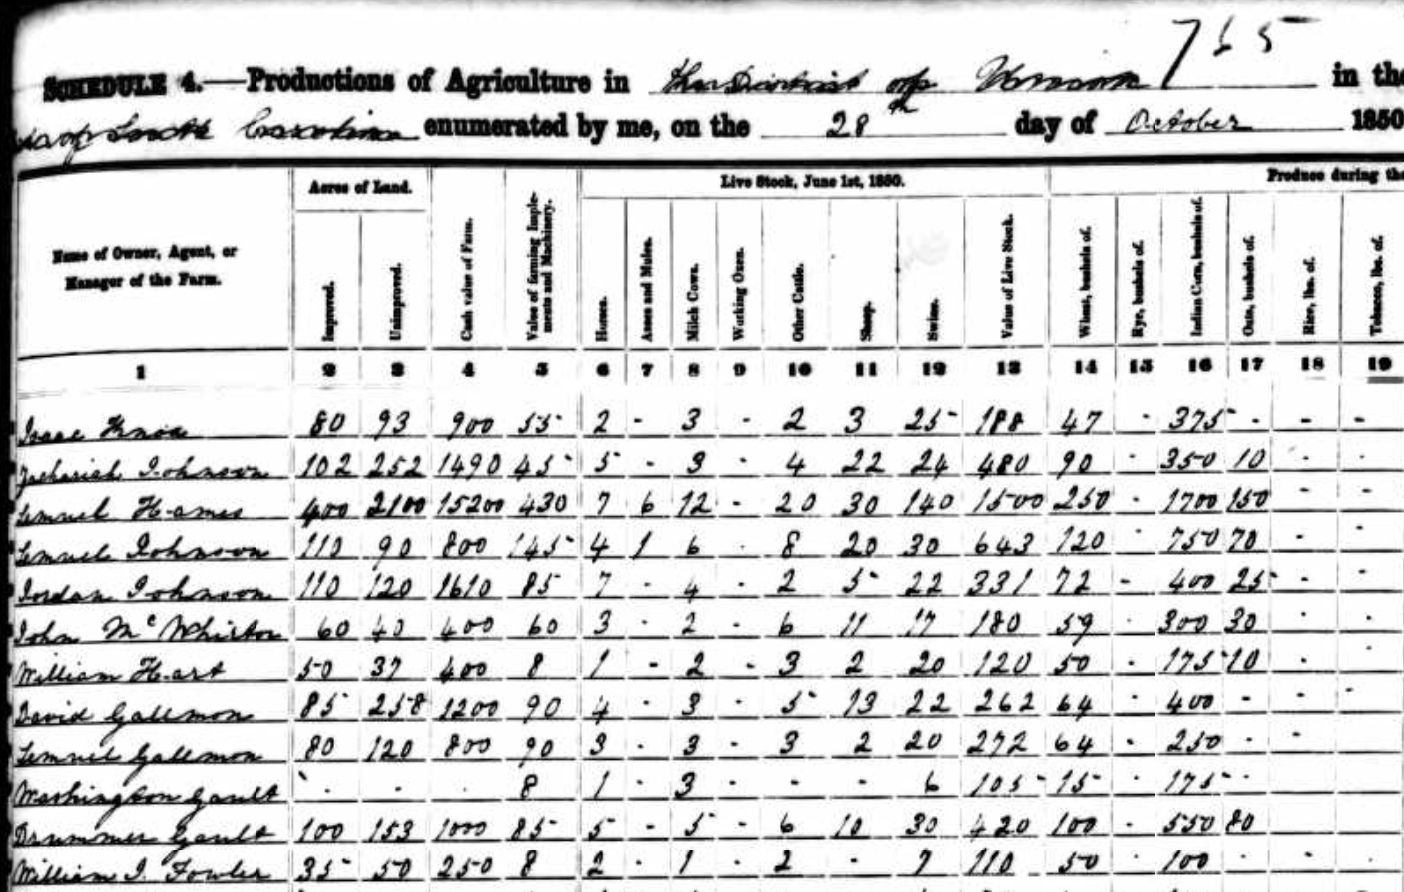 765
SCHEDULE 4.—Productions of Agriculture in the District of Union in the
of South Carolina enumerated by me, on the 28th day of October 1850
Acres of Land. Live Stock, June 1st, 1850. Produce during the
Name of Owner, Agent, or Manager of the Farm. Improved. Unimproved. Cash value of Farm. Value of farming Implements and Machinery. Horses. Asses and Mules. Milch Cows. Working Oxen. Other Cattle. Sheep. Swine. Value of Live Stock. Wheat, bushels of. Rye, bushels of. Indian Corn, bushels of. Oats, bushels of. Rice, lbs. of. Tobacco, lbs. of.
1 2 3 4 5 6 7 8 9 10 11 12 13 14 15 16 17 18 19
Isaac Knox 80 93 900 55 2 - 3 - 2 3 25 188 47 - 375 - - -
Zachariah Johnson 102 252 1490 45 5 - 3 - 4 22 24 480 90 - 350 10 - -
Lemuel Hames 400 2100 15200 430 7 6 12 - 20 30 140 1500 250 - 1700 150 - -
Lemuel Johnson 110 90 800 145 4 1 6 - 8 20 30 643 120 - 750 70 - -
Jordan Johnson 110 120 1610 85 7 - 4 - 2 5 22 331 72 - 400 25 - -
John McWhirton 60 40 400 60 3 - 2 - 6 11 17 180 59 - 300 30 - -
William Hart 50 37 400 8 1 - 2 - 3 2 20 120 50 - 175 10 - -
David Gallmon 85 258 1200 90 4 - 3 - 5 13 22 262 64 - 400 - - -
Lemuel Gallmon 80 120 800 90 3 - 3 - 3 2 20 272 64 - 250 - -
Washington Gault - - - 8 1 - 3 - - 6 105 15 - 175 -
Drummer Gault 100 153 1000 85 5 - 5 - 6 10 30 420 100 - 550 80
William J. Fowler 35 50 250 8 2 - 1 - 2 - 7 110 50 - 100 - - -